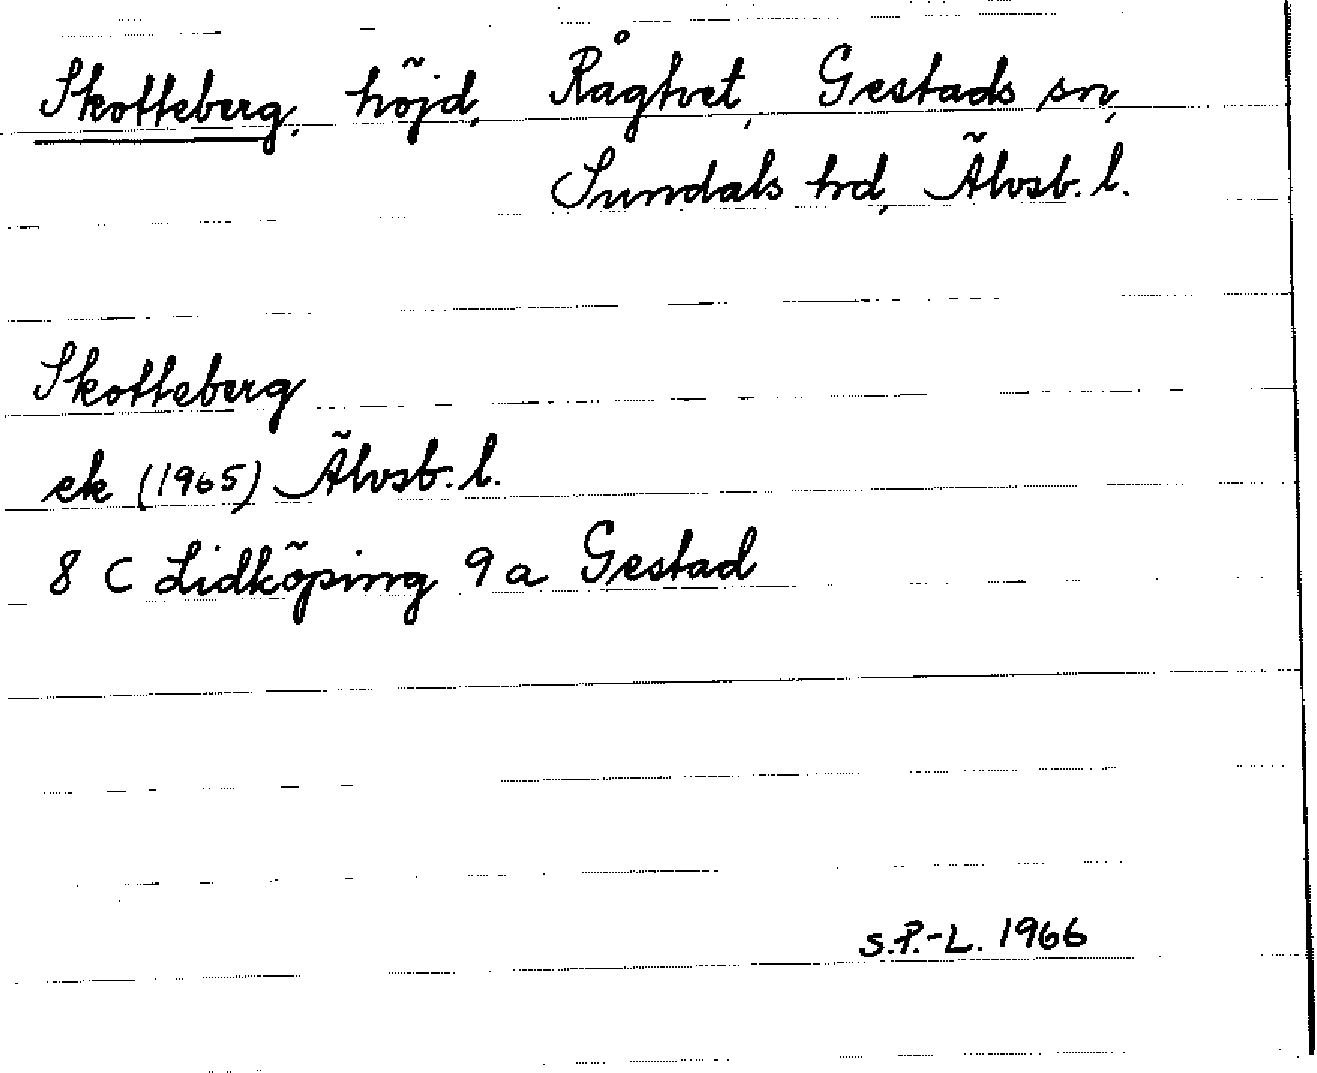 Skotteberg, höjd, Rågtvet, Gestads sn,
Sundals hd, Älvsb. l.
Skotteberg
ek (1965) Älvsb. l.
8 C Lidköping 9 a Gestad
S.P.-L. 1966